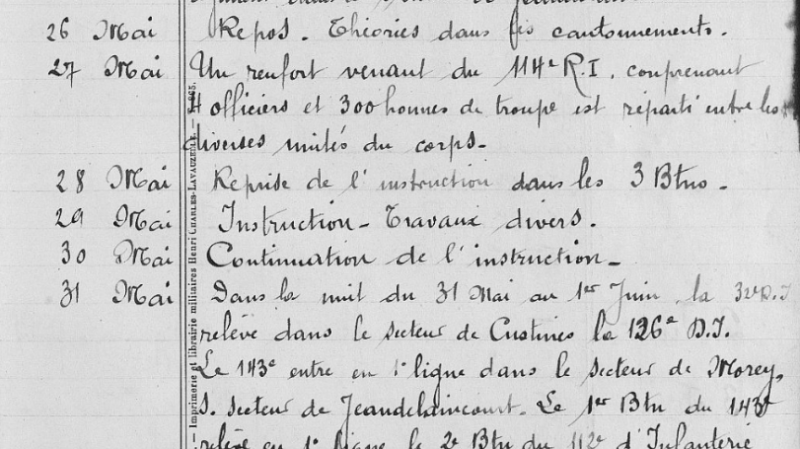 26 Mai Repos. Théories dans les cantonnements.
27 Mai Un renfort venant du 114e R.I. comprenant
4 officiers et 300 hommes de troupe est réparti entre les
diverses unités du corps.
28 Mai Reprise de l'instruction dans les 3 Btns.
29 Mai Instruction - Travaux divers.
30 Mai Continuation de l'instruction.
31 Mai Dans la nuit du 31 Mai au 1er Juin la 32e D.I
relève dans le secteur de Custines la 126e D.I.
Le 143e entre en 1e ligne dans le secteur de Morey,
S. secteur de Jeandelaincourt. Le 1er Btn du 143e
relève en 1e ligne le 2e Btn du 112e d'Infanterie
— Imprimerie et librairie militaires Henri CHARLES-LAVAUZELLE. —